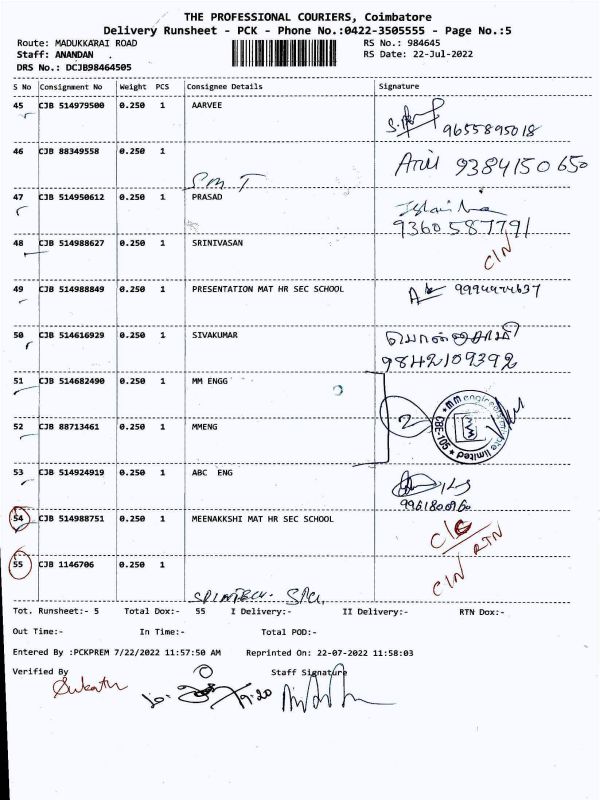 THE PROFESSIONAL COURIERS, Coimbatore
Delivery Runsheet - PCK - Phone No.:0422-3505555 - Page No.:5
Route: MADUKKARAI ROAD RS No.: 984645
Staff: ANANDAN . RS Date: 22-Jul-2022
DRS No.: DCJB98464505
S No Consignment No Weight PCS Consignee Details Signature
45 CJB 514979500 0.250 1 AARVEE
9655895018
46 CJB 88349558 0.250 1
SMT 9384150650
47 CJB 514950612 0.250 1 PRASAD
9360587791
48 CJB 514988627 0.250 1 SRINIVASAN C/N
49 CJB 514988849 0.250 1 PRESENTATION MAT HR SEC SCHOOL
50 CJB 514616929 0.250 1 SIVAKUMAR
9842109392
51 CJB 514682490 0.250 1 MM ENGG
52 CJB 88713461 0.250 1 MMENG 2
CBE-105
53 CJB 514924919 0.250 1 ABC ENG
54 CJB 514988751 0.250 1 MEENAKKSHI MAT HR SEC SCHOOL
55 CJB 1146706 0.250 1 C/N RTN
Tot. Runsheet:- 5 Total Dox:- 55 I Delivery:- II Delivery:- RTN Dox:-
Out Time:- In Time:- Total POD:-
Entered By :PCKPREM 7/22/2022 11:57:50 AM Reprinted On: 22-07-2022 11:58:03
Verified By Staff Signature